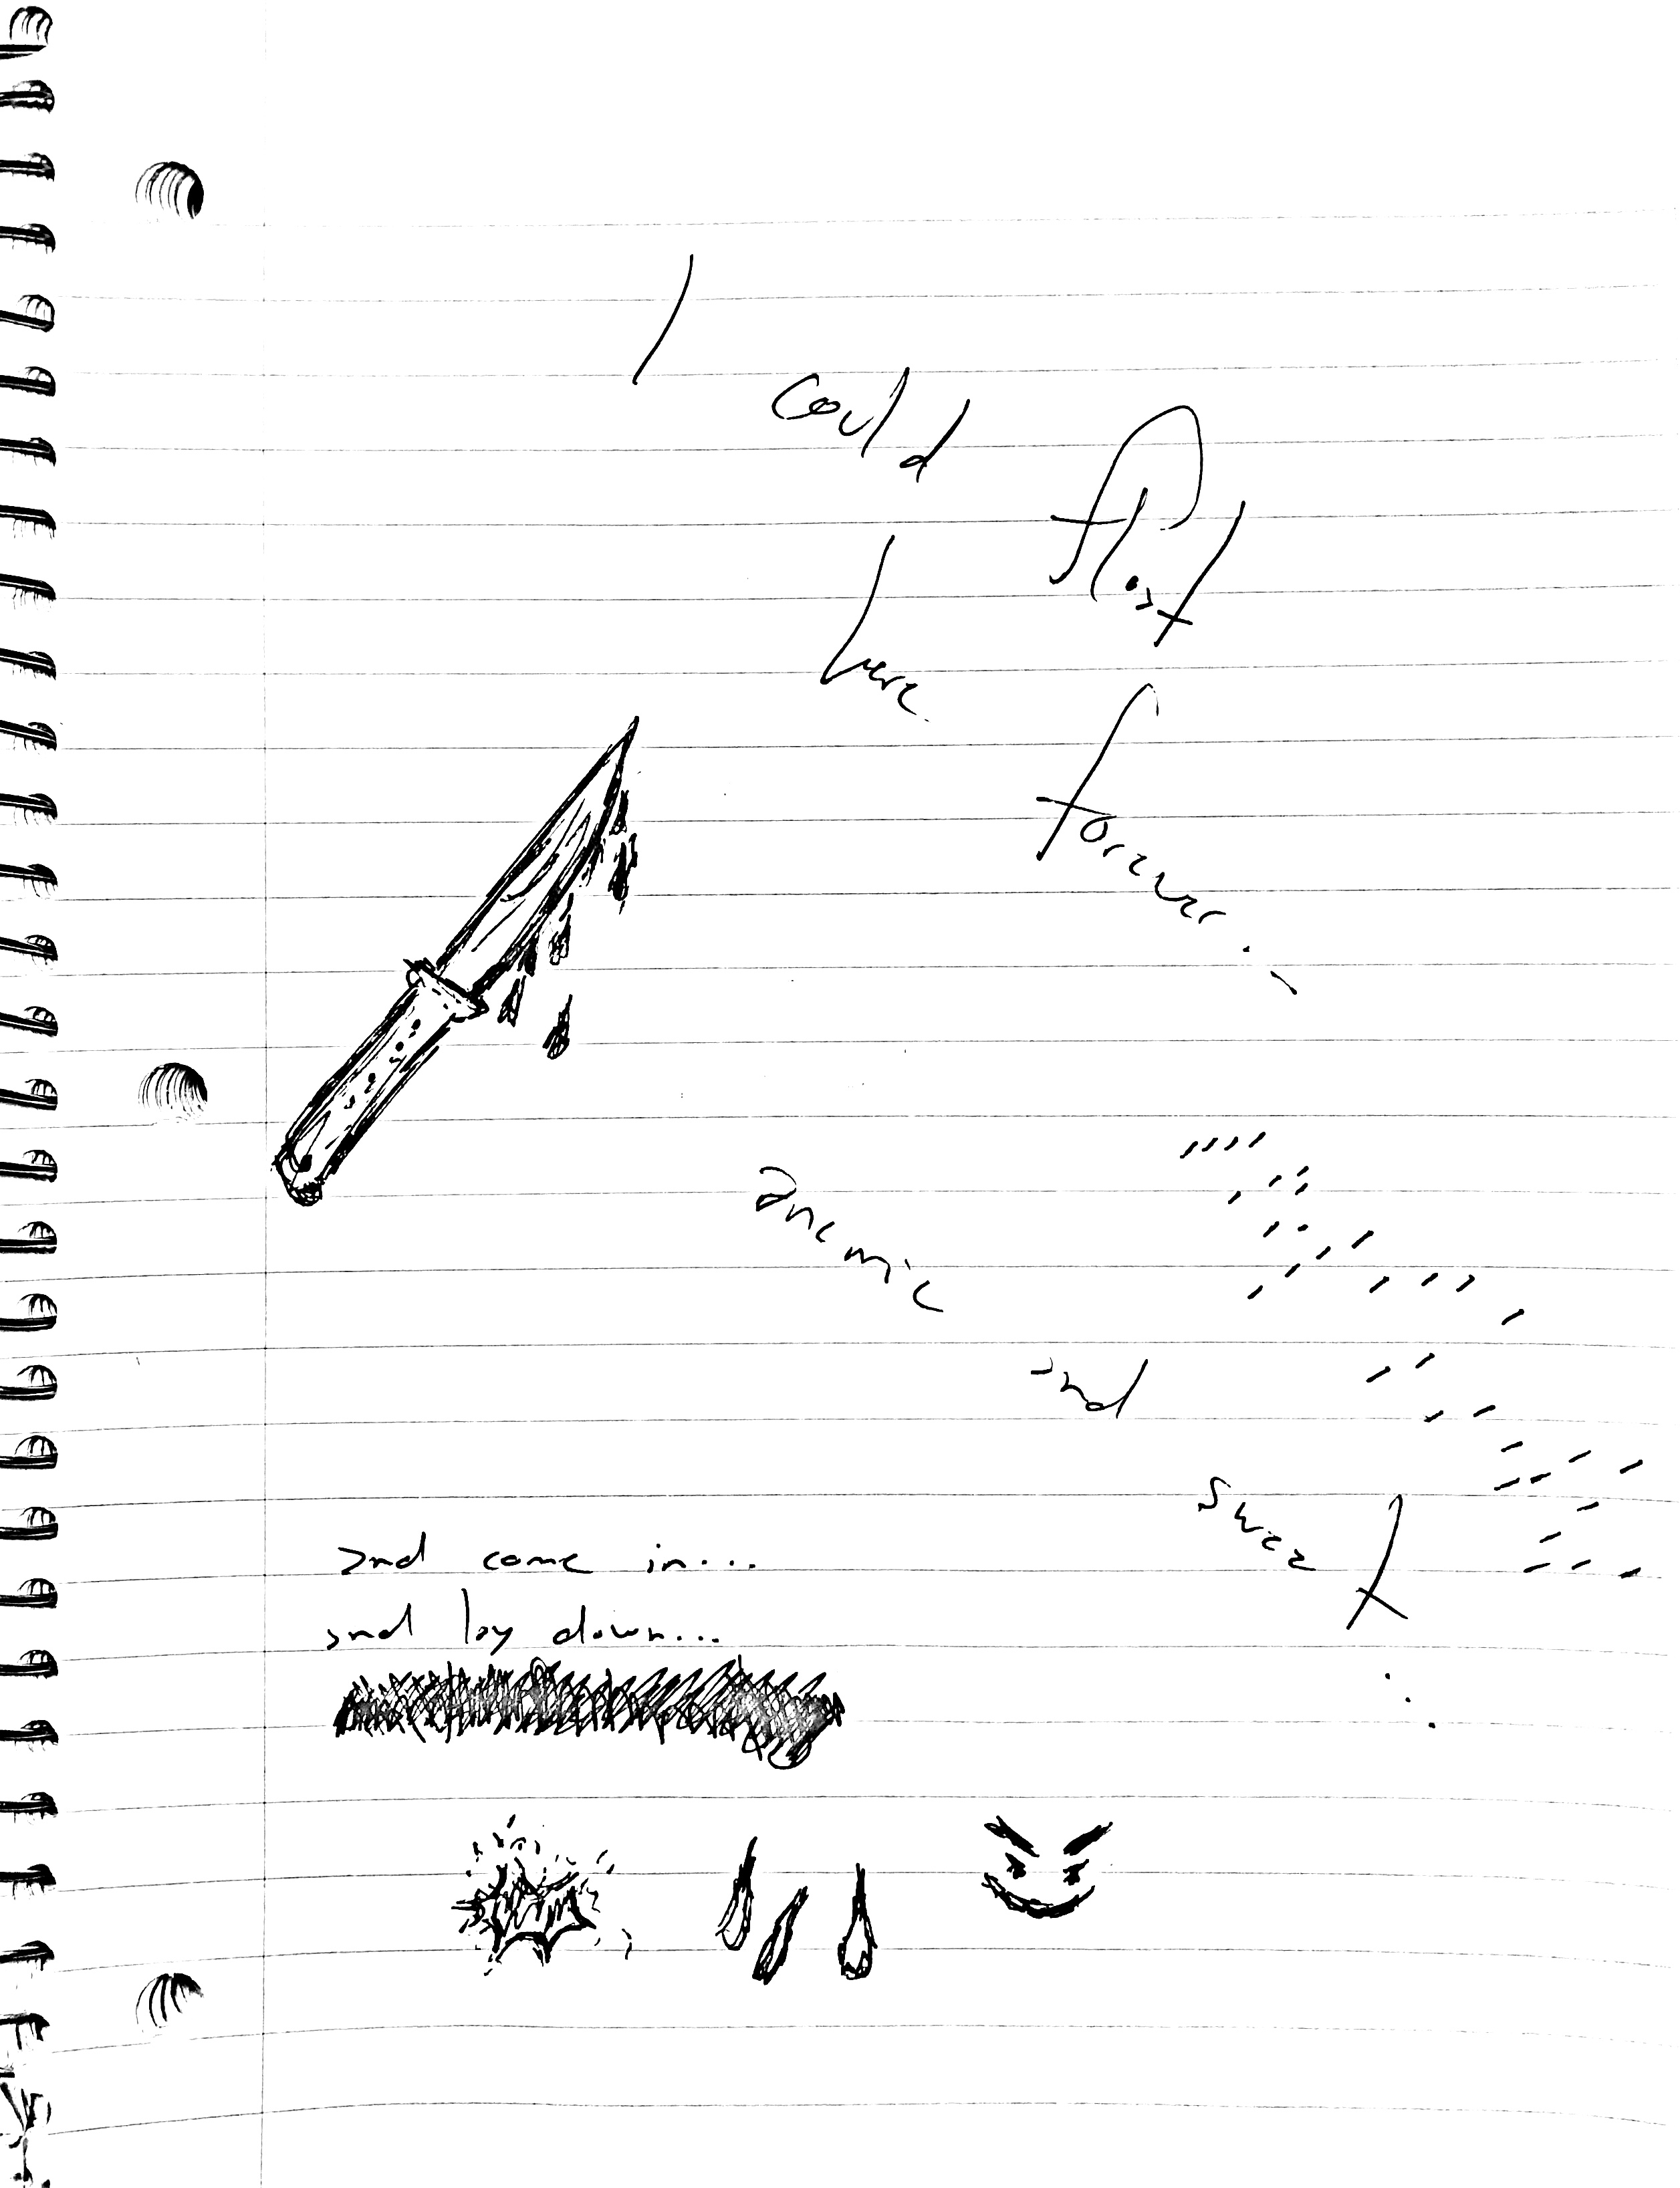 I could float
here forever..
anemic
and
sweet...
and come in...
and lay down...